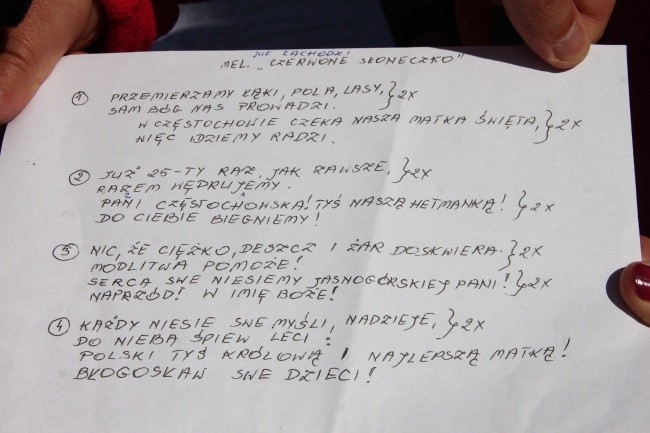 JUŻ ZACHODZI
MEL. „CZERWONE SŁONECZKO"
1 PRZEMIERZAMY ŁĄKI, POLA, LASY, } 2X
SAM BÓG NAS PROWADZI.
W CZĘSTOCHOWIE CZEKA NASZA MATKA ŚWIĘTA, } 2X
WIĘC IDZIEMY RADZI.
2 JUŻ 25-TY RAZ, JAK ZAWSZE, } 2X
RAZEM WĘDRUJEMY.
PANI CZĘSTOCHOWSKA! TYŚ NASZĄ HETMANKĄ! } 2X
DO CIEBIE BIEGNIEMY!
3 NIC, ŻE CIĘŻKO, DESZCZ I ŻAR DOSKWIERA. } 2X
MODLITWA POMOŻE!
SERCA SWE NIESIEMY JASNOGÓRSKIEJ PANI! } 2X
NAPRZÓD! W IMIĘ BOŻE!
4 KAŻDY NIESIE SWE MYŚLI, NADZIEJE, } 2X
DO NIEBA ŚPIEW LECI:
POLSKI TYŚ KRÓLOWĄ I NAJLEPSZĄ MATKĄ!
BŁOGOSŁAW SWE DZIECI!